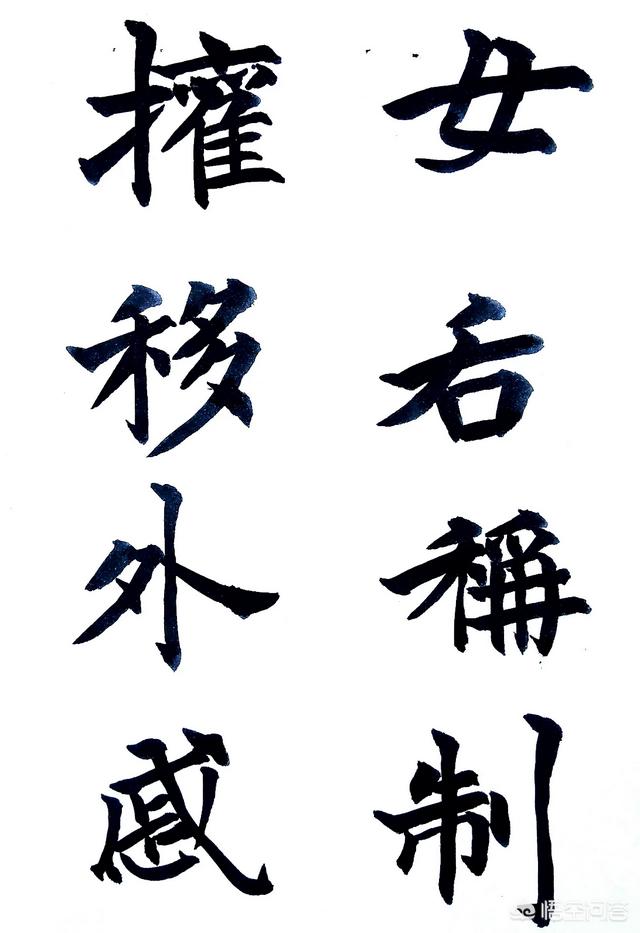 女后稱制
權移外戚
悟空问答